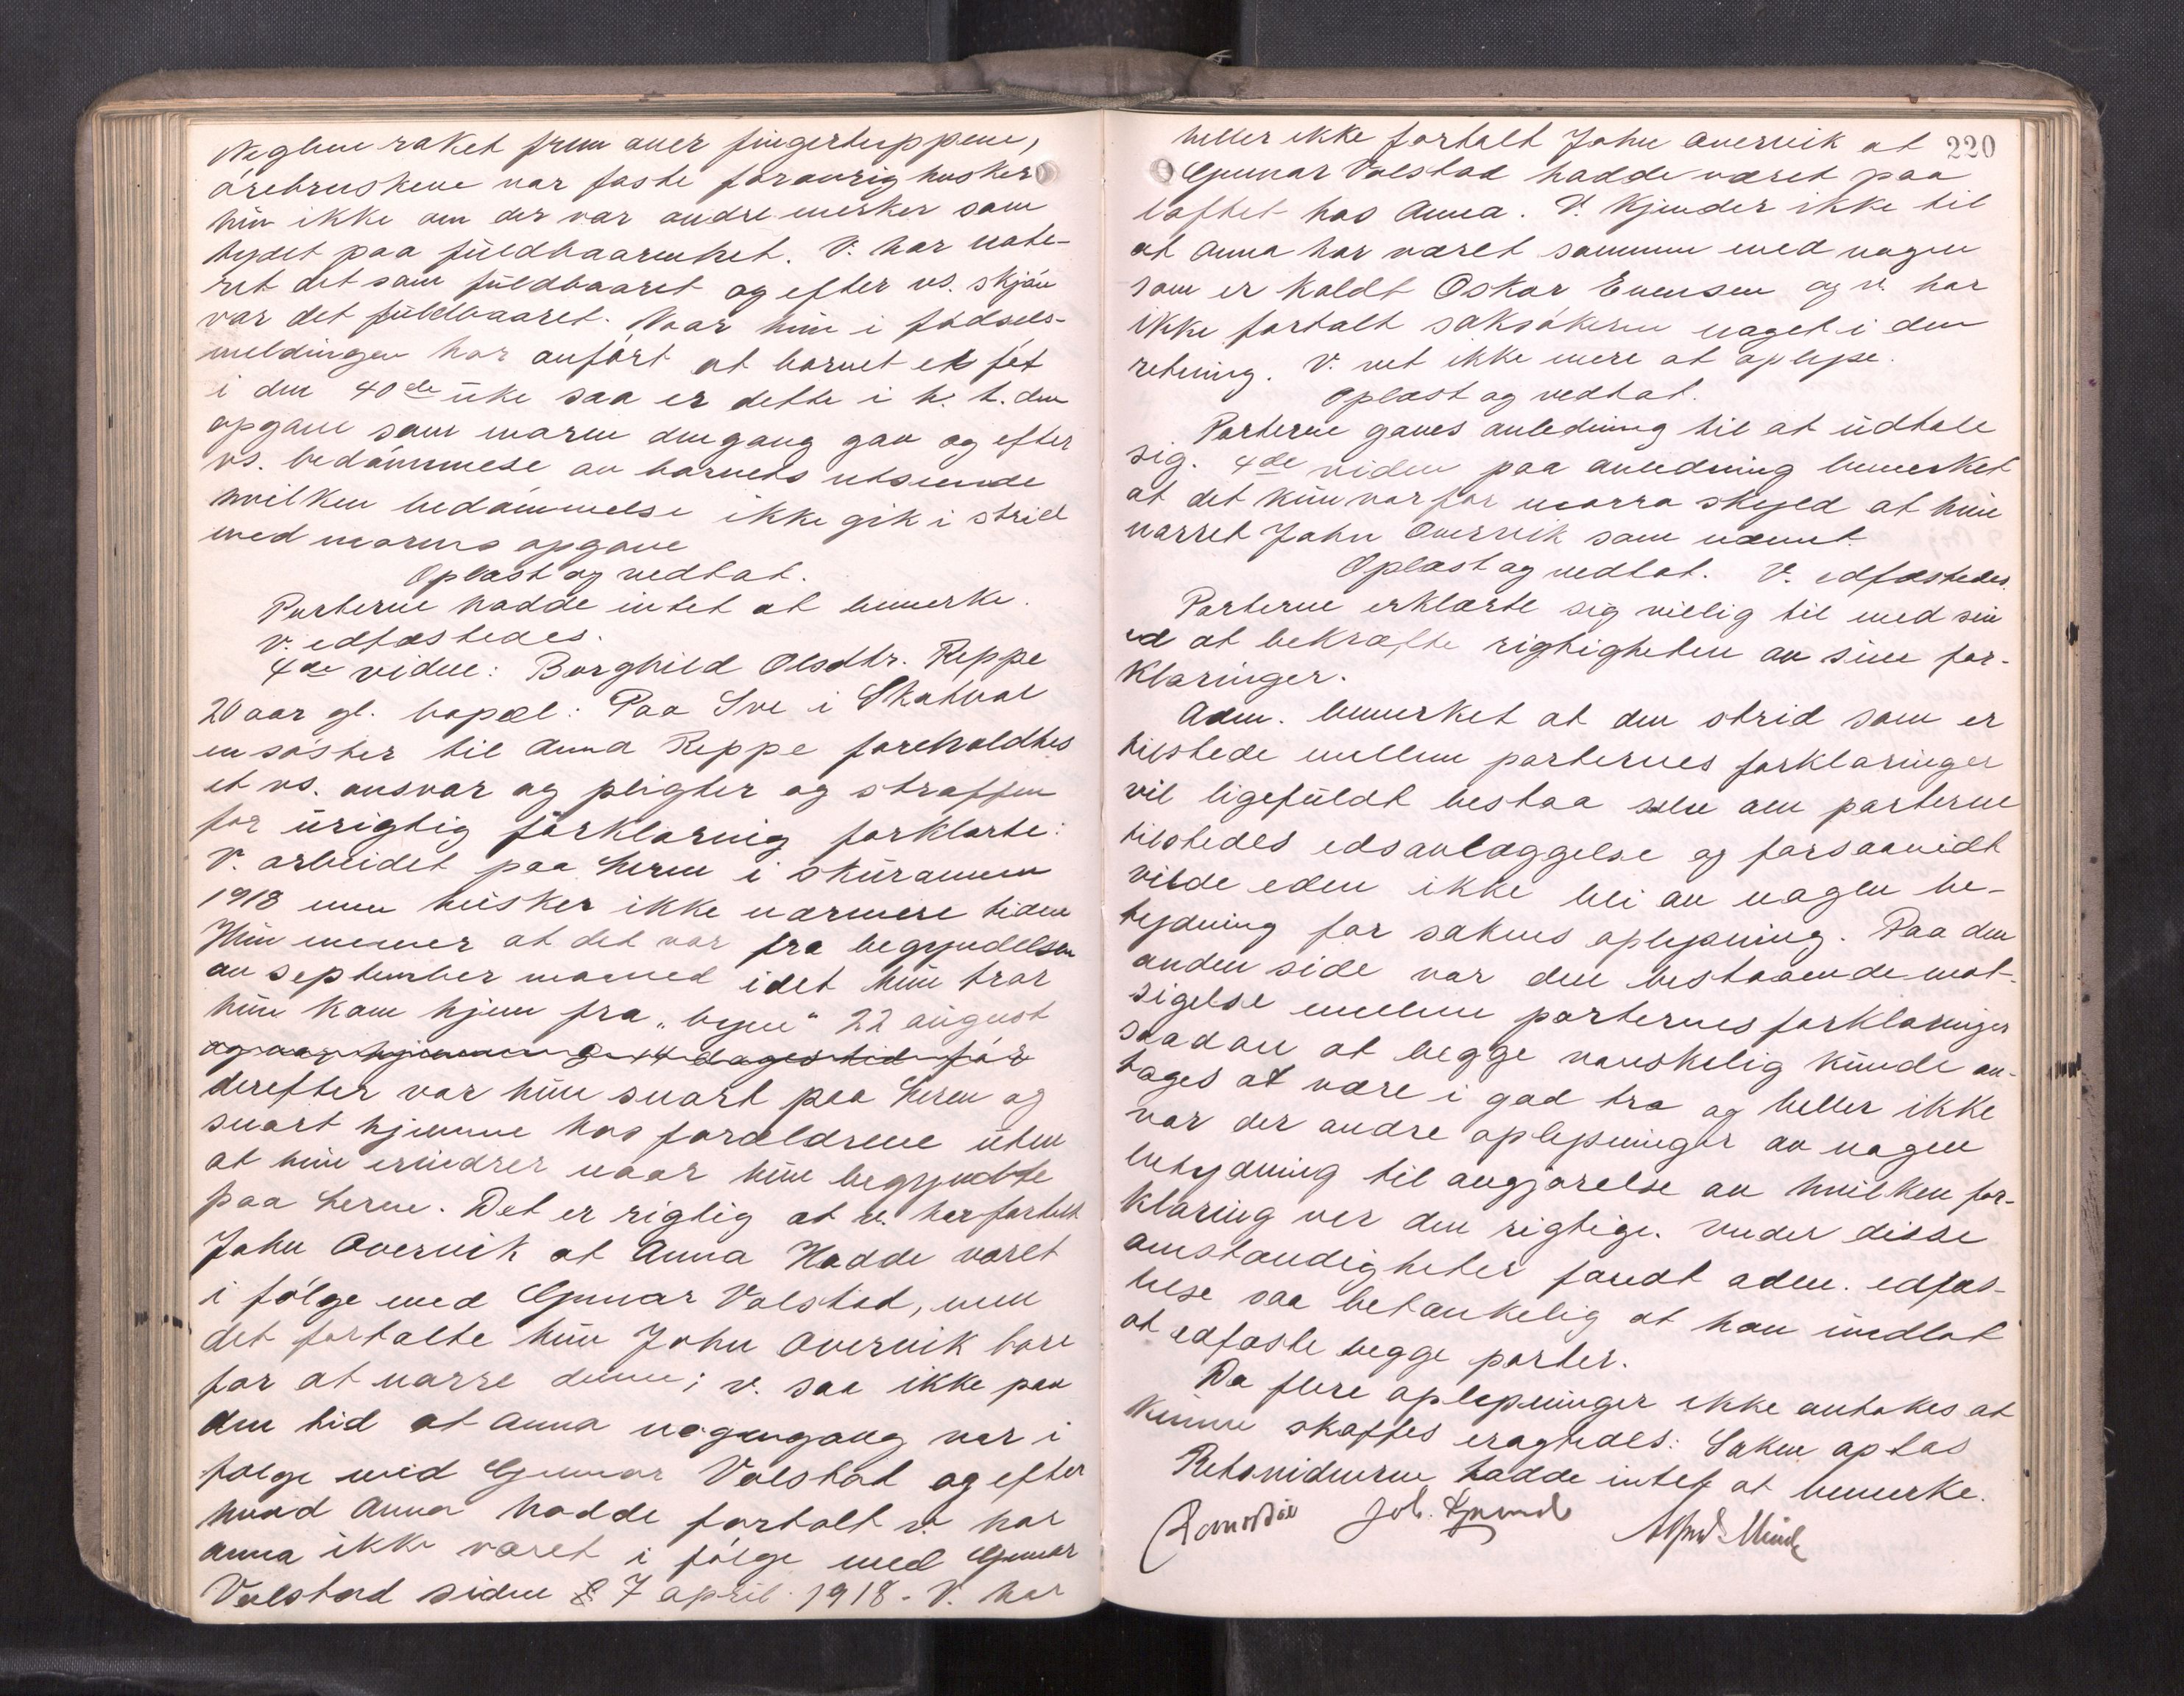 Neglene raket frem over fingertuppene,
ørebruskene var faste forøvrig husker
hun ikke om der var andre merker som
tydet paa fuldbaarenhet. V. har note-
ret det som fuldbaaret og efter vs. skjøn
var det fuldbaaret. Naar hun i fødsels-
meldingen har anført at barnet er føt
i den 40de uke saa er dette i h. t. den
opgave som moren dengang gav og efter
vs. bedømmelse av barnets utseende
hvilken bedømmelse ikke gik i strid
med morens opgave
Oplæst og vedtat.
Parterne hadde intet at bemerke.
V. edfæstedes.
4de vidne: Borghild Olsdtr. Reppe
20 aar gl. bopæl: Paa Sve i Skatval
en søster til Anna Reppe foreholdtes
et vs. ansvar og pligter og straffen
for urigtig forklaring forklarte:
V. arbeidet paa Leren i skuraannen
1918 men husker ikke nærmere tiden
Hun mener at det var fra begyndelsen
av september maaned idet hun tror
hun kom hjem fra "byen" 22 august
og var hjemme 8-14 dages tid før
derefter var hun snart paa Leren og
snart hjemme hos forældrene uten
at hun erindrer naar hun begyndte
paa Leren. Det er rigtig at v. har fortalt
John Overvik at Anna Hadde været
i følge med Gunnar Valstad, men
det fortalte hun John Overvik bare
for at narre denne; v. saa ikke paa
den tid at Anna nogengang var i
følge med Gunnar Valstad og efter
hvad Anna hadde fortalt v. har
Anna ikke været i følge med Gunnar
Valstad siden 7 april 1918. V. har
220
heller ikke fortalt John Overvik at
Gunnar Valstad hadde været paa
loftet hos Anna. V. Kjender ikke til
at Anna har været sammen med nogen
som er kaldt Oskar Evensen og v. har
ikke fortalt saksøkeren noget i den
retning. V. vet ikke mere at oplyse.
Oplæst og vedtat.
Parterne gaves anledning til at udtale
sig. 4de vidne paa anledning bemerket
at det kun var for morro skyld at hun
narret John Overvik som nævnt.
Oplæst og vedtat. V. edfæstedes.
Parterne erklærte sig villig til med sin
ed at bekræfte rigtigheten av sine for-
klaringer.
Adm. bemerket at den strid som er
tilstede mellem parternes forklaringer
vil ligefuldt bestaa selv om parterne
tilstedes edsavlæggelse og forsaavidt
vilde eden ikke bli av nogen be-
tydning for sakens oplysning. Paa den
anden side var den bestaaende mot-
sigelse mellem parternes forklaringer
saadan at begge vanskelig kunde an-
tages at være i god tro og heller ikke
var der andre oplysninger av nogen
betydning til avgjørelse av hvilken for-
klaring var den rigtige. Under disse
omstændigheter fandt adm. edfæs-
telse saa betænkelig at han undlot
at edfæste begge parter.
Da flere oplysninger ikke antokes at
kunne skaffes eragtedes: Saken optas
Retsvidnerne hadde intet at bemerke.